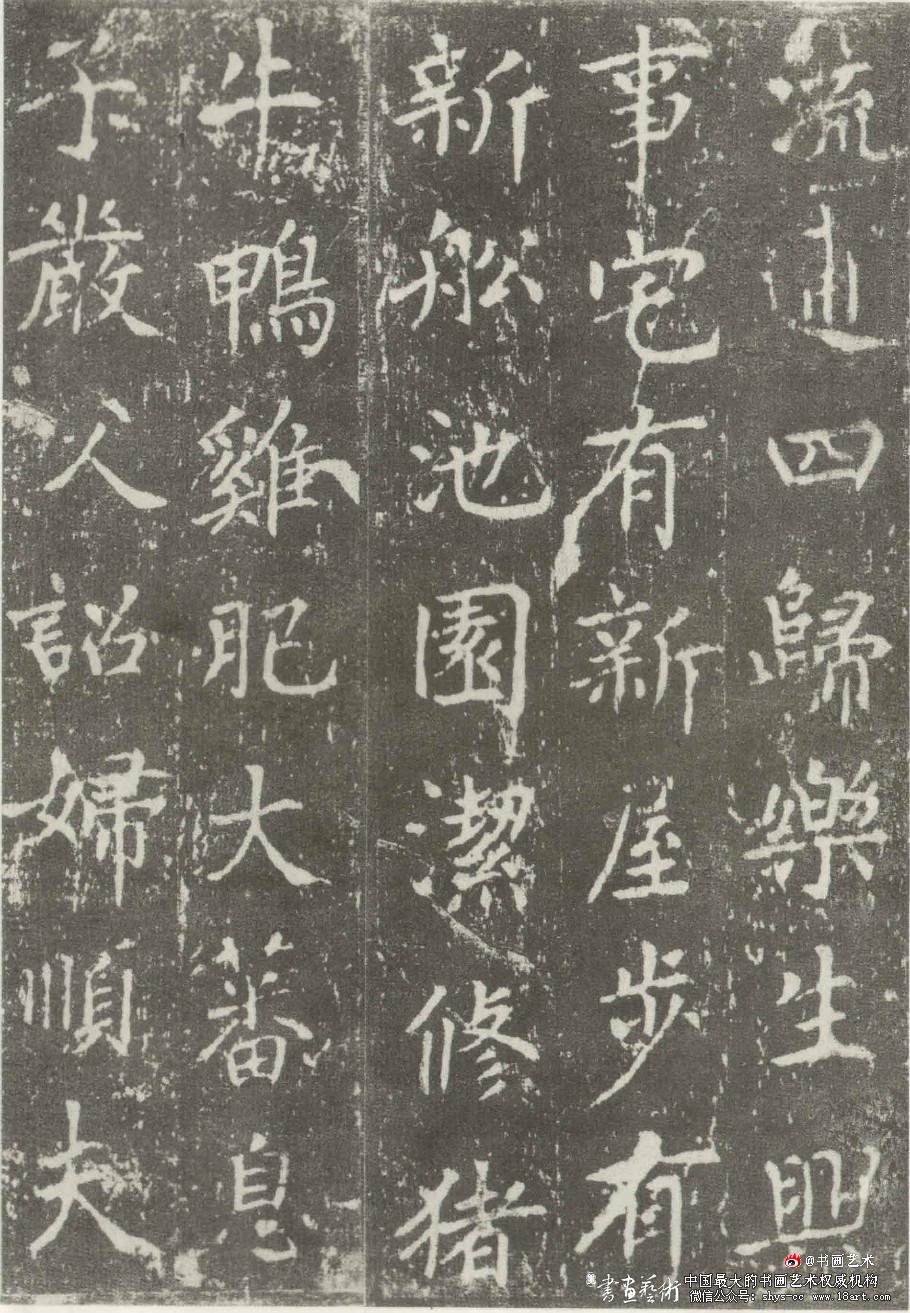 流逋四歸樂生興
事宅有新屋步有
新船池園潔修猪
牛鴨雞肥大蕃息
子嚴父詔婦順夫
@书画艺术
書畫藝術
中国最大的书画艺术权威机构
微信公众号：shys-cc www.18art.com